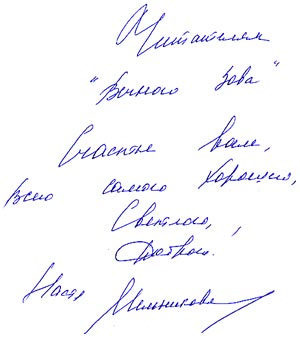 Читателям
"Вечного Зова"
Счастье вам,
Всего самого хорошего,
Светлого,
Доброго.
Настя Мельникова